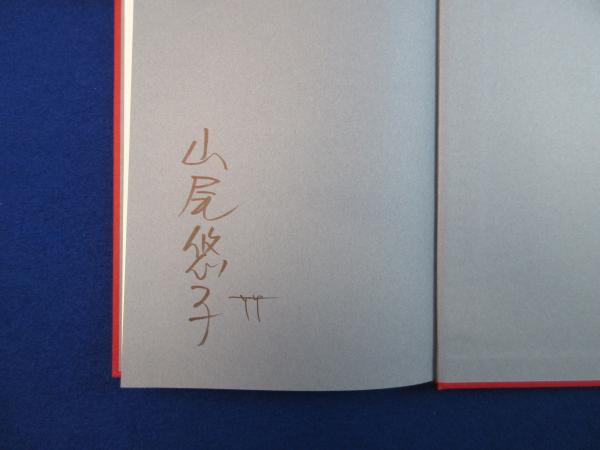 山尾悠子